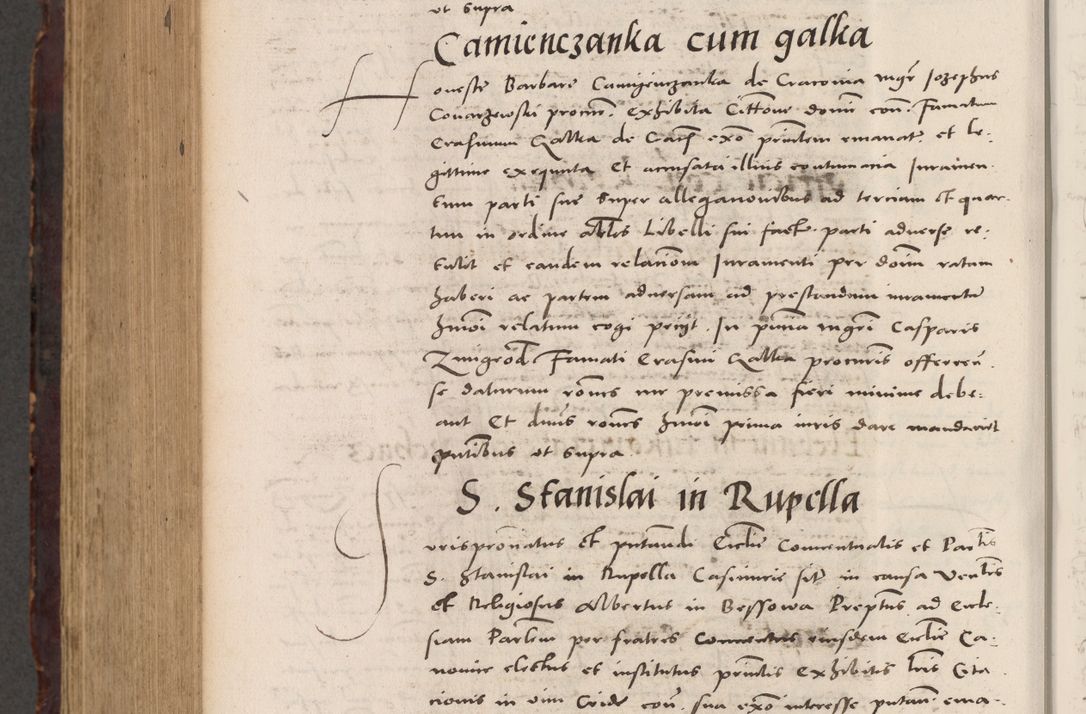 ut supra
Camienczanka cum galka
Honeste Barbare Camyenczanka de Cracovia mgr Jozephus
Covarzewski procur. exhibita Cittone domi con. Famatum
Erasmum Galka de Cas exo pntem emanat. et le-
gittime exequuta et accusata illius contumacia Juramen-
tum parti sue super allegationibus ad tercium et quar-
tum in ordine artlis Libelli sui fact. parti adverse re-
tulit et eandem relationem Juramenti per dom ratum
haberi ac partem adversam ad prestandum iuramentu
hmoi relatum cogi petijt. In pntia mgri Casparis
Zmigrod Famati Erasmi Galka procuris offeren.
se daturum rones cur premissa fieri minime debe-
ant Et dnus rones hmoi prima iuris dare mandavit
partibus ut supra
S. Stanislai in Rupella
Juris pronatus et putandi Ecclie Conventualis et Parlis
S. Stanislai in Rupella Casimirie sit. in causa Venlis
et Religiosus Albertus in Bessowa Preptus ad Eccle-
siam Parlem per fratres Conventus eiusdem Ecclie Ca-
nonice electus et institutus pntis exhibitis lris Cita
cionis in vim Cride con. sua exo interesse putan. ema-